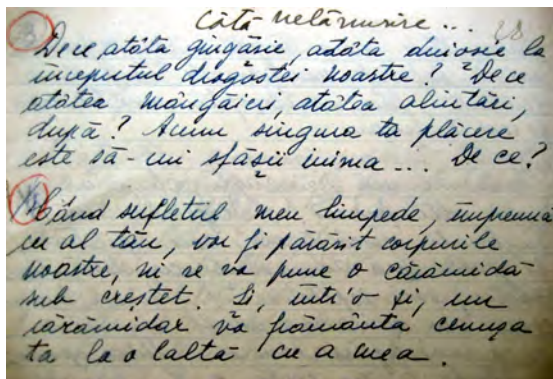 Câtă nelămurire...
De ce, atâta gingășie, atâta duioșie la
începutul dragostei noastre? De ce
atâtea mângăieri, atâtea alintări,
după? Acum singura ta plăcere
este să-mi sfășii inima... De ce?
Când sufletul meu limpede, împreună
cu al tău, vor fi părăsit corpurile
noastre, ni se va pune o cărămidă
sub creștet. Și, într'o zi, un
cărămidar va frământa cenușa
ta la o laltă cu a mea.